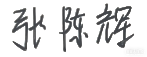 张陈辉